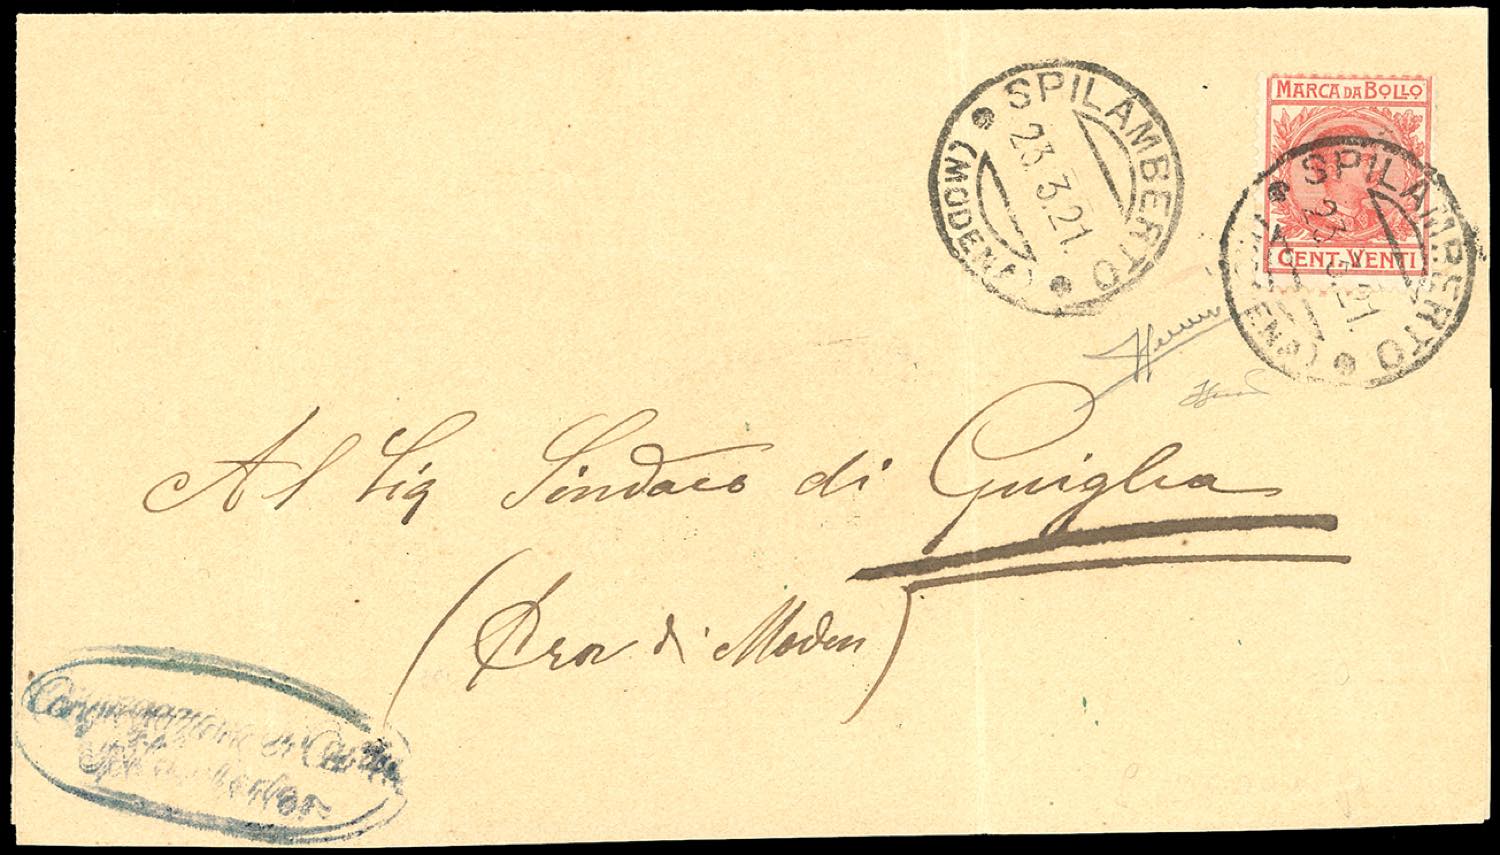 SPILAMBERTO
23.3.21.
(MODENA)
MARCA DA BOLLO
CENT. VENTI
SPILAMBERTO
23.3.21.
(MODENA)
Al Sig Sindaco di Guiglia
( di Moden)
Congregazione di Carità
Spilamberto